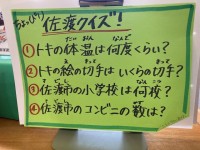 ちょっぴり 佐渡クイズ!
①トキの体温は何度くらい?
②トキの絵の切手はいくらの切手?
③佐渡市の小学校は何校?
④佐渡市のコンビニの数は?